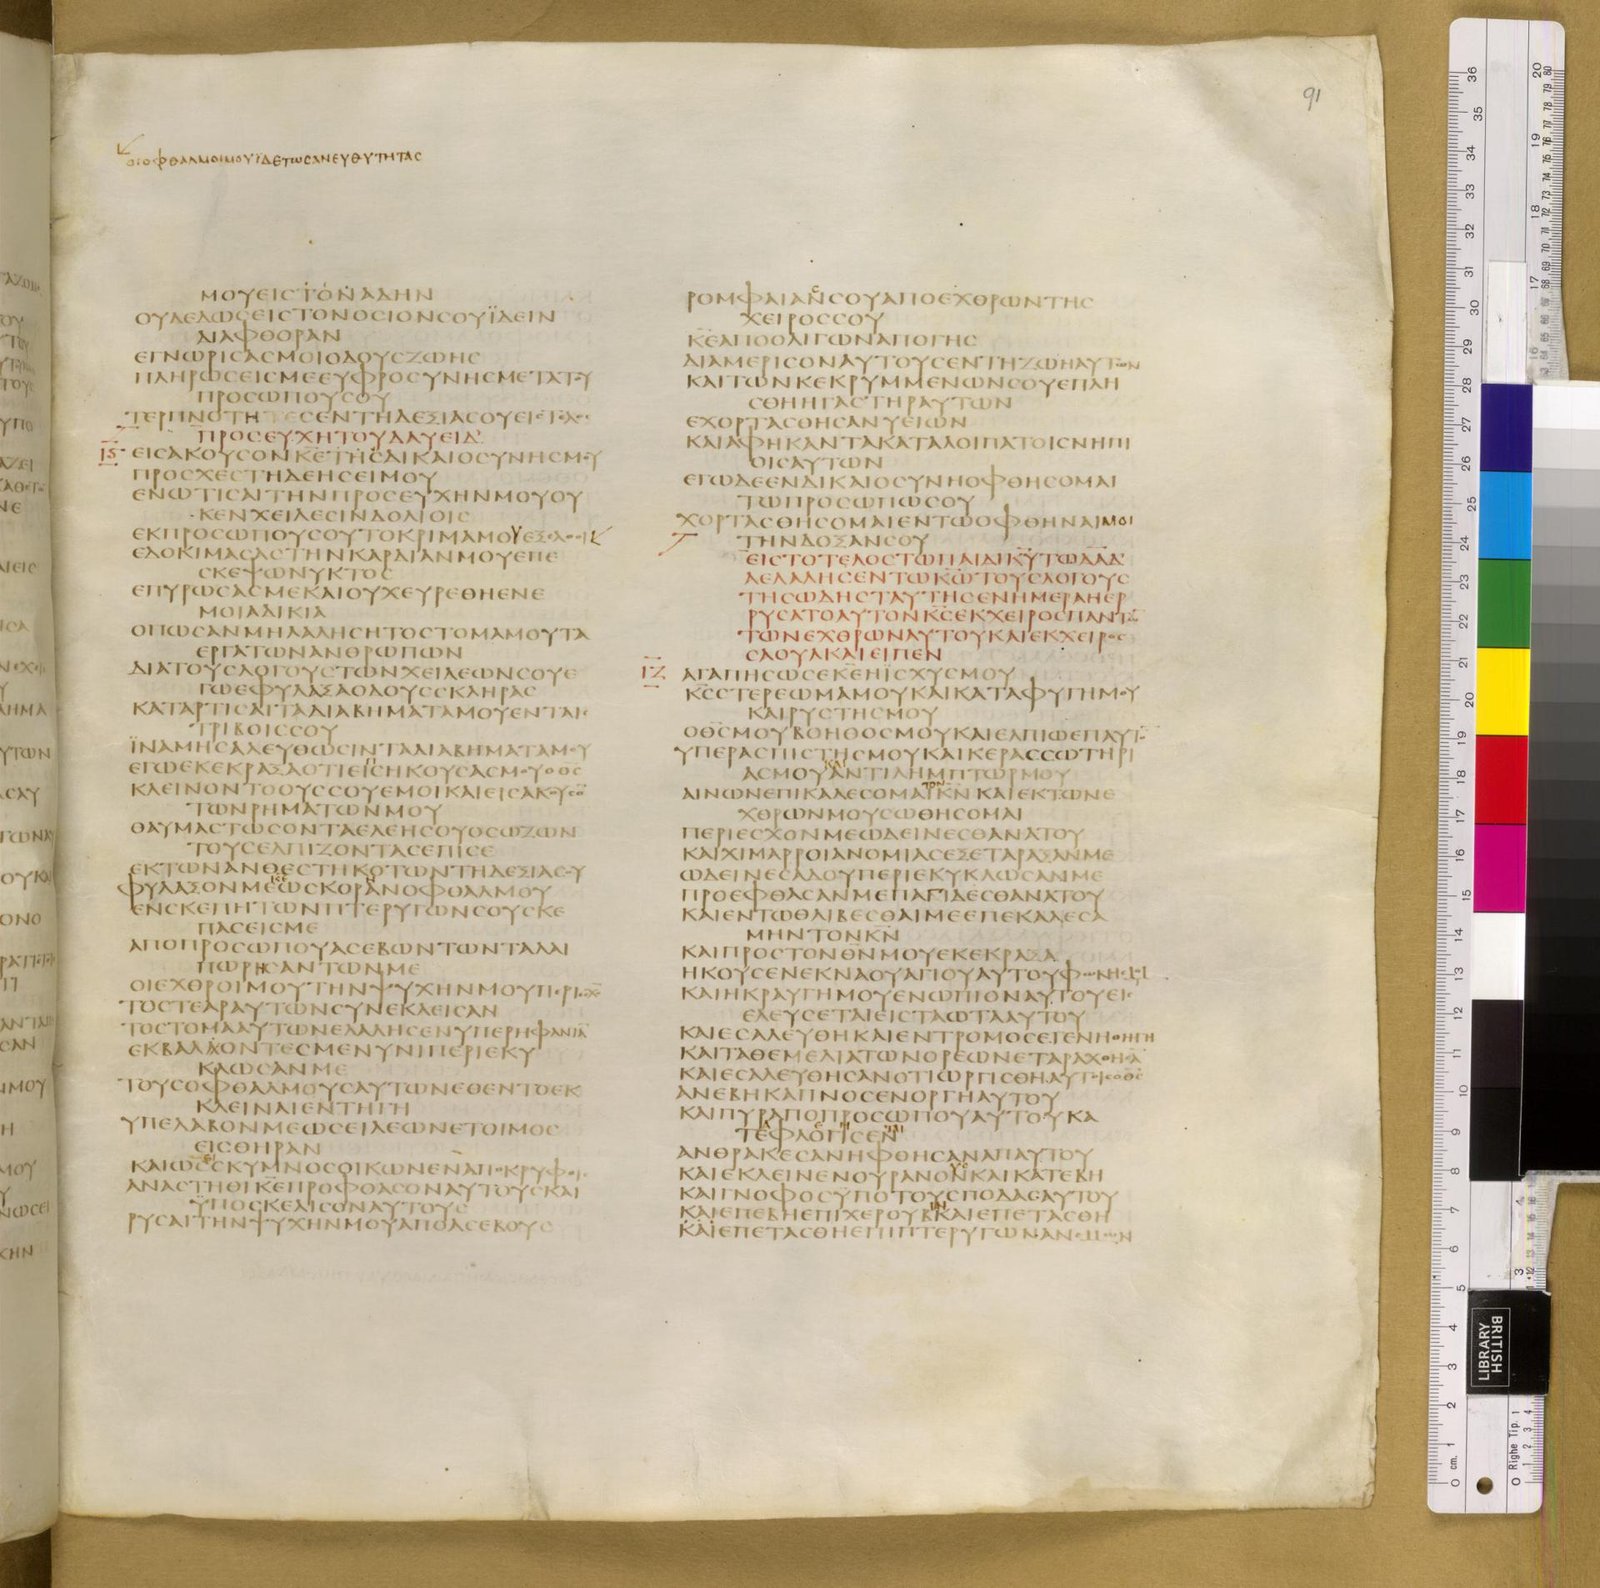 91
οιοφθαλμοιμουϊδετωσανευθυτητας
ΜΟΥΕΙΣΤΟΝΑΔΗΝ
ΟΥΔΕΔΩΣΕΙΣΤΟΝΟΣΙΟΝΣΟΥΪΔΕΙΝ
ΔΙΑΦΘΟΡΑΝ
ΕΓΝΩΡΙΣΑΣΜΟΙΟΔΟΥΣΖΩΗΣ
ΠΛΗΡΩΣΕΙΣΜΕΕΥΦΡΟΣΥΝΗΣΜΕΤΑΤΟΥ
ΠΡΟΣΩΠΟΥΣΟΥ
ΤΕΡΠΝΟΤΗΤΕΣΕΝΤΗΔΕΞΙΑΣΟΥΕΙΣΤΕΛΟΣ
ΠΡΟΣΕΥΧΗΤΟΥΔΑΥΕΙΔ
ΙϚ
ΕΙΣΑΚΟΥΣΟΝΚΕΤΗΣΔΙΚΑΙΟΣΥΝΗΣΜΟΥ
ΠΡΟΣΧΕΣΤΗΔΕΗΣΕΙΜΟΥ
ΕΝΩΤΙΣΑΙΤΗΝΠΡΟΣΕΥΧΗΝΜΟΥΟΥ
ΚΕΝΧΕΙΛΕΣΙΝΔΟΛΙΟΙΣ
ΕΚΠΡΟΣΩΠΟΥΣΟΥΤΟΚΡΙΜΑΜΟΥΕΞΕΛΘΟΙ
ΕΔΟΚΙΜΑΣΑΣΤΗΝΚΑΡΔΙΑΝΜΟΥΕΠΕ
ΣΚΕΨΩΝΥΚΤΟΣ
ΕΠΥΡΩΣΑΣΜΕΚΑΙΟΥΧΕΥΡΕΘΗΕΝΕ
ΜΟΙΑΔΙΚΙΑ
ΟΠΩΣΑΝΜΗΛΑΛΗΣΗΤΟΣΤΟΜΑΜΟΥΤΑ
ΕΡΓΑΤΩΝΑΝΘΡΩΠΩΝ
ΔΙΑΤΟΥΣΛΟΓΟΥΣΤΩΝΧΕΙΛΕΩΝΣΟΥΕ
ΓΩΕΦΥΛΑΞΑΟΔΟΥΣΣΚΛΗΡΑΣ
ΚΑΤΑΡΤΙΣΑΙΤΑΔΙΑΒΗΜΑΤΑΜΟΥΕΝΤΑΙΣ
ΤΡΙΒΟΙΣΣΟΥ
ΪΝΑΜΗΣΑΛΕΥΘΩΣΙΝΤΑΔΙΑΒΗΜΑΤΑΜΟΥ
ΕΓΩΕΚΕΚΡΑΞΑΟΤΙΕΙΣΗΚΟΥΣΑΣΜΟΥΟΘΣ
ΚΛΕΙΝΟΝΤΟΟΥΣΣΟΥΕΜΟΙΚΑΙΕΙΣΑΚΟΥΣΟ
ΤΩΝΡΗΜΑΤΩΝΜΟΥ
ΘΑΥΜΑΣΤΩΣΟΝΤΑΕΛΕΗΣΟΥΟΣΩΖΩΝ
ΤΟΥΣΕΛΠΙΖΟΝΤΑΣΕΠΙΣΕ
ΕΚΤΩΝΑΝΘΕΣΤΗΚΟΤΩΝΤΗΔΕΞΙΑΣΟΥ
ΦΥΛΑΞΟΝΜΕΩΣΚΟΡΑΝΟΦΘΑΛΜΟΥ
ΕΝΣΚΕΠΗΤΩΝΠΤΕΡΥΓΩΝΣΟΥΣΚΕ
ΠΑΣΕΙΣΜΕ
ΑΠΟΠΡΟΣΩΠΟΥΑΣΕΒΩΝΤΩΝΤΑΛΑΙ
ΠΩΡΗΣΑΝΤΩΝΜΕ
ΟΙΕΧΘΡΟΙΜΟΥΤΗΝΨΥΧΗΝΜΟΥΠΕΡΙΕΣΧΟ
ΤΟΣΤΕΑΡΑΥΤΩΝΣΥΝΕΚΛΕΙΣΑΝ
ΤΟΣΤΟΜΑΑΥΤΩΝΕΛΑΛΗΣΕΝΥΠΕΡΗΦΑΝΙΑ
ΕΚΒΑΛΛΟΝΤΕΣΜΕΝΥΝΙΠΕΡΙΕΚΥ
ΚΛΩΣΑΝΜΕ
ΤΟΥΣΟΦΘΑΛΜΟΥΣΑΥΤΩΝΕΘΕΝΤΟΕΚ
ΚΛΕΙΝΑΙΕΝΤΗΓΗ
ΥΠΕΛΑΒΟΝΜΕΩΣΕΙΛΕΩΝΕΤΟΙΜΟΣ
ΕΙΣΘΗΡΑΝ
ΚΑΙΩΣΣΚΥΜΝΟΣΟΙΚΩΝΕΝΑΠΟΚΡΥΦΟΙΣ
ΑΝΑΣΤΗΘΙΚΕΠΡΟΦΘΑΣΟΝΑΥΤΟΥΣΚΑΙ
ΫΠΟΣΚΕΛΙΣΟΝΑΥΤΟΥΣ
ΡΥΣΑΙΤΗΝΨΥΧΗΝΜΟΥΑΠΟΑΣΕΒΟΥΣ
ΡΟΜΦΑΙΑΝΣΟΥΑΠΟΕΧΘΡΩΝΤΗΣ
ΧΕΙΡΟΣΣΟΥ
ΚΕΑΠΟΟΛΙΓΩΝΑΠΟΓΗΣ
ΔΙΑΜΕΡΙΣΟΝΑΥΤΟΥΣΕΝΤΗΖΩΗΑΥΤΩΝ
ΚΑΙΤΩΝΚΕΚΡΥΜΜΕΝΩΝΣΟΥΕΠΛΗ
ΣΘΗΗΓΑΣΤΗΡΑΥΤΩΝ
ΕΧΟΡΤΑΣΘΗΣΑΝΥΕΙΩΝ
ΚΑΙΑΦΗΚΑΝΤΑΚΑΤΑΛΟΙΠΑΤΟΙΣΝΗΠΙ
ΟΙΣΑΥΤΩΝ
ΕΓΩΔΕΕΝΔΙΚΑΙΟΣΥΝΗΟΦΘΗΣΟΜΑΙ
ΤΩΠΡΟΣΩΠΩΣΟΥ
ΧΟΡΤΑΣΘΗΣΟΜΑΙΕΝΤΩΟΦΘΗΝΑΙΜΟΙ
ΤΗΝΔΟΞΑΝΣΟΥ
ΕΙΣΤΟΤΕΛΟΣΤΩΠΑΙΔΙΚΥΤΩΔΑΔ
ΛΕΛΑΛΗΣΕΝΤΩΚΩΤΟΥΣΛΟΓΟΥΣ
ΤΗΣΩΔΗΣΤΑΥΤΗΣΕΝΗΜΕΡΑΗΕΡ
ΡΥΣΑΤΟΑΥΤΟΝΚΣΕΚΧΕΙΡΟΣΠΑΝΤΩ
ΤΩΝΕΧΘΡΩΝΑΥΤΟΥΚΑΙΕΚΧΕΙΡΟΣ
ΣΑΟΥΛΚΑΙΕΙΠΕΝ
ΙΖ
ΑΓΑΠΗΣΩΣΕΚΕΗΪΣΧΥΣΜΟΥ
ΚΣΣΤΕΡΕΩΜΑΜΟΥΚΑΙΚΑΤΑΦΥΓΗΜΟΥ
ΚΑΙΡΥΣΤΗΣΜΟΥ
ΟΘΣΜΟΥΒΟΗΘΟΣΜΟΥΚΑΙΕΛΠΙΩΕΠΑΥΤΟ
ΥΠΕΡΑΣΠΙΣΤΗΣΜΟΥΚΑΙΚΕΡΑΣΣΩΤΗΡΙ
ΑΣΜΟΥΑΝΤΙΛΗΜΠΤΩΡΜΟΥ
ΑΙΝΩΝΕΠΙΚΑΛΕΣΟΜΑΙΚΝΚΑΙΕΚΤΩΝΕ
ΧΘΡΩΝΜΟΥΣΩΘΗΣΟΜΑΙ
ΠΕΡΙΕΣΧΟΝΜΕΩΔΕΙΝΕΣΘΑΝΑΤΟΥ
ΚΑΙΧΙΜΑΡΡΟΙΑΝΟΜΙΑΣΕΞΕΤΑΡΑΞΑΝΜΕ
ΩΔΕΙΝΕΣΑΔΟΥΠΕΡΙΕΚΥΚΛΩΣΑΝΜΕ
ΠΡΟΕΦΘΑΣΑΝΜΕΠΑΓΙΔΕΣΘΑΝΑΤΟΥ
ΚΑΙΕΝΤΩΘΛΙΒΕΣΘΑΙΜΕΕΠΕΚΑΛΕΣΑ
ΜΗΝΤΟΝΚΝ
ΚΑΙΠΡΟΣΤΟΝΘΝΜΟΥΕΚΕΚΡΑΞΑ
ΗΚΟΥΣΕΝΕΚΝΑΟΥΑΓΙΟΥΑΥΤΟΥΦΩΝΗΣΜΟΥ
ΚΑΙΗΚΡΑΥΓΗΜΟΥΕΝΩΠΙΟΝΑΥΤΟΥΕΙΣ
ΕΛΕΥΣΕΤΑΙΕΙΣΤΑΩΤΑΑΥΤΟΥ
ΚΑΙΕΣΑΛΕΥΘΗΚΑΙΕΝΤΡΟΜΟΣΕΓΕΝΗΘΗΗΓΗ
ΚΑΙΤΑΘΕΜΕΛΙΑΤΩΝΟΡΕΩΝΕΤΑΡΑΧΘΗΣΑ
ΚΑΙΕΣΑΛΕΥΘΗΣΑΝΟΤΙΩΡΓΙΣΘΗΑΥΤΟΙΣΟΘΣ
ΑΝΕΒΗΚΑΠΝΟΣΕΝΟΡΓΗΑΥΤΟΥ
ΚΑΙΠΥΡΑΠΟΠΡΟΣΩΠΟΥΑΥΤΟΥΚΑ
ΤΕΦΛΟΓΙΣΕΝ
ΑΝΘΡΑΚΕΣΑΝΗΦΘΗΣΑΝΑΠΑΥΤΟΥ
ΚΑΙΕΚΛΕΙΝΕΝΟΥΡΑΝΟΝΚΑΙΚΑΤΕΒΗ
ΚΑΙΓΝΟΦΟΣΥΠΟΤΟΥΣΠΟΔΑΣΑΥΤΟΥ
ΚΑΙΕΠΕΒΗΕΠΙΧΕΡΟΥΒΚΑΙΕΠΕΤΑΣΘΗ
ΚΑΙΕΠΕΤΑΣΘΗΕΠΙΠΤΕΡΥΓΩΝΑΝΕΜΩΝ
BRITISH
LIBRARY
Righe Tip.
cm.